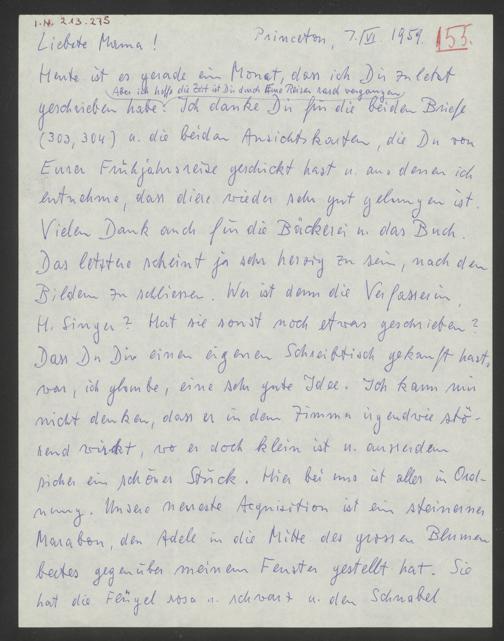 I.N. 213.275
Princeton, 7./VI 1959.
155.
Liebste Mama!
Heute ist es gerade ein Monat, dass ich Dir zuletzt
Aber ich hoffe die Zeit ist Dir durch Eure Reisen rasch vergangen
geschrieben habe. Ich danke Dir für die beiden Briefe
(303, 304) u. die beiden Ansichtskarten, die Du von
Eurer Frühjahrsreise geschickt hast u. aus denen ich
entnehme, dass diese wieder sehr gut gelungen ist.
Vielen Dank auch für die Bäckerei u. das Buch.
Das letztere scheint ja sehr herzig zu sein, nach den
Bildern zu schliessen. Wer ist denn die Verfasserin,
H. Singer? Hat sie sonst noch etwas geschrieben?
Dass Du Dir einen eigenen Schreibtisch gekauft hast,
war, ich glaube, eine sehr gute Idee. Ich kann mir
nicht denken, dass er in dem Zimmer irgendwie stö-
rend wirkt, wo er doch klein ist u. ausserdem
sicher ein schönes Stück. Hier bei uns ist alles in Ord-
nung. Unsere neueste Acquisition ist ein steinerner
Marabou, den Adele in die Mitte des grossen Blumen
beetes gegenüber meinem Fenster gestellt hat. Sie
hat die Flügel rosa u. schwarz u. den Schnabel